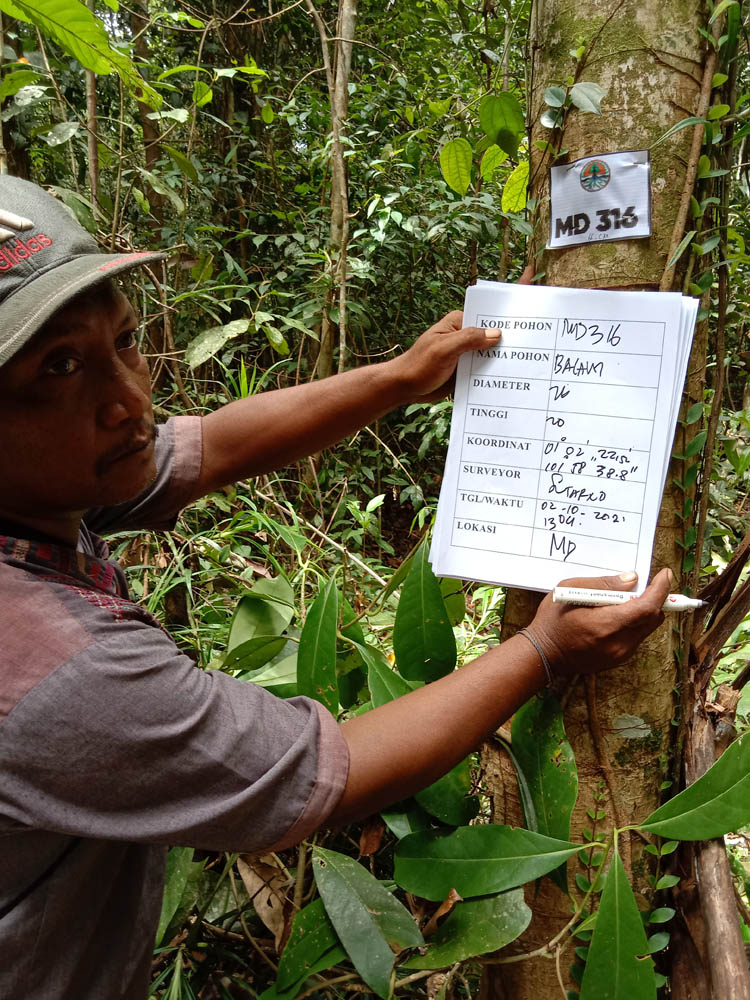 adidas
MD 316
KODE POHON MD316
NAMA POHON BALAM
DIAMETER 26
TINGGI 20
KOORDINAT 01° 02'
101 58 38.8"
SURVEYOR
TGL/WAKTU 02-10-2021
13:04
LOKASI MD